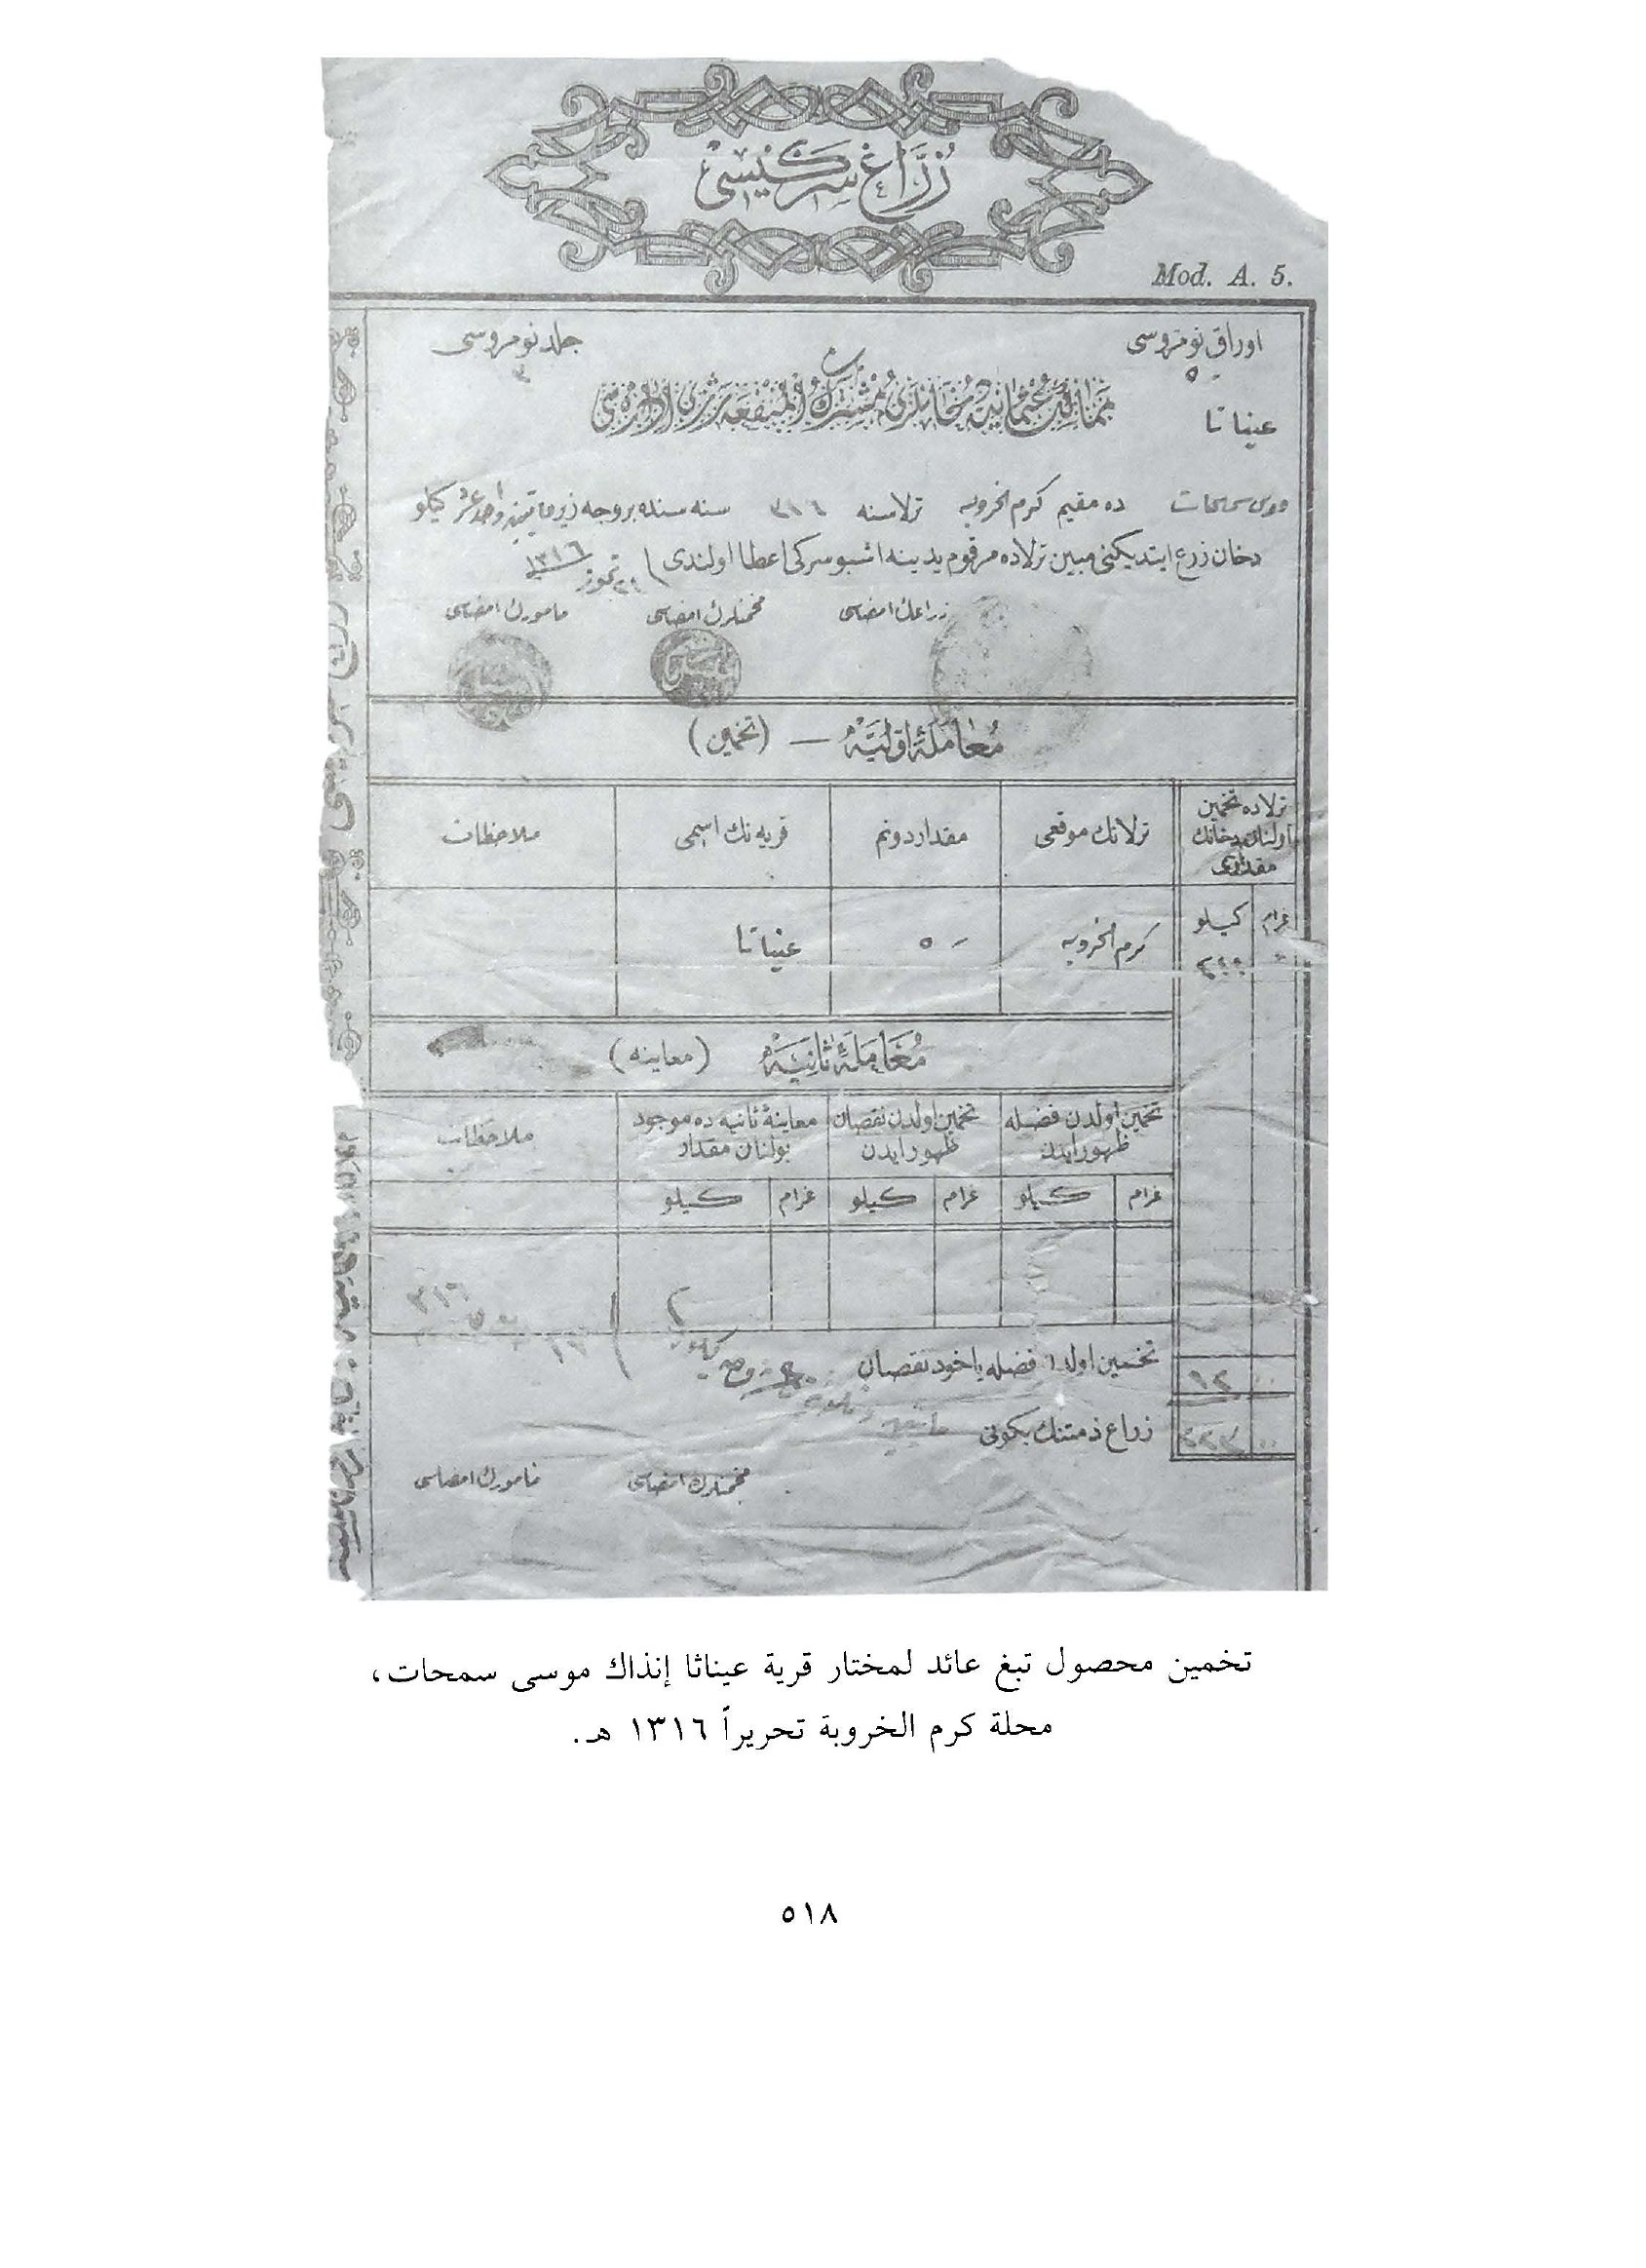 زراع سركيسى
Mod. A. 5.
اوراق نومروسى
جلد نومروسى
٥
٣
ممالك عثمانيه دخانلرى مشترك المنفعه رژى اداره سى
عيناتا
موسى سمحات ده مقيم كرم الخروبه ترلاسنه ٣١٦ سنه سنده بروجه زير كيلو
دخان زرع ايتديكنى مبين ترلاده مرقوم يدينه اشبو سركى اعطا اولندى تموز ١٣١٦
زراعك امضاسى
مخمنلرك امضاسى
مأمورك امضاسى
معاملهٔ اوليه — (تخمين)
ترلاده تخمين اولنان دخانك مقدارى
ترلانك موقعى
مقدار دونم
قريه نك اسمى
ملاحظات
غرام
كيلو
كرم الخروبه
٥
عيناتا
معاملهٔ ثانيه (معاينه)
تخمين اولدن فضله ظهور ايدن
تخمين اولدن نقصان ظهور ايدن
معاينهٔ ثانيه ده موجود بولنان مقدار
ملاحظات
غرام
كيلو
غرام
كيلو
غرام
كيلو
٣١٦
تخمين اولدن فضله ياخود نقصان
١٢
زراع ذمتنك يكونى
مخمنلرك امضاسى
مأمورك امضاسى
تخمين محصول تبغ عائد لمختار قرية عيناثا إنذاك موسى سمحات،
محلة كرم الخروبة تحريراً ١٣١٦ هـ.
٥١٨